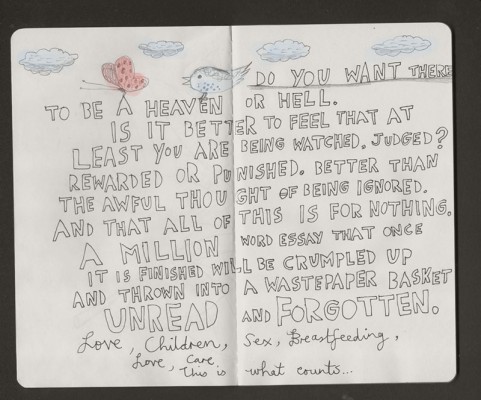 DO YOU WANT THERE
TO BE A HEAVEN OR HELL.
IS IT BETTER TO FEEL THAT AT
LEAST YOU ARE BEING WATCHED. JUDGED?
REWARDED OR PUNISHED. BETTER THAN
THE AWFUL THOUGHT OF BEING IGNORED.
AND THAT ALL OF THIS IS FOR NOTHING.
A MILLION WORD ESSAY THAT ONCE
IT IS FINISHED WILL BE CRUMPLED UP
AND THROWN INTO A WASTEPAPER BASKET
UNREAD AND FORGOTTEN.
Love, Children, Sex, Breastfeeding,
Love, Care,
This is what counts...